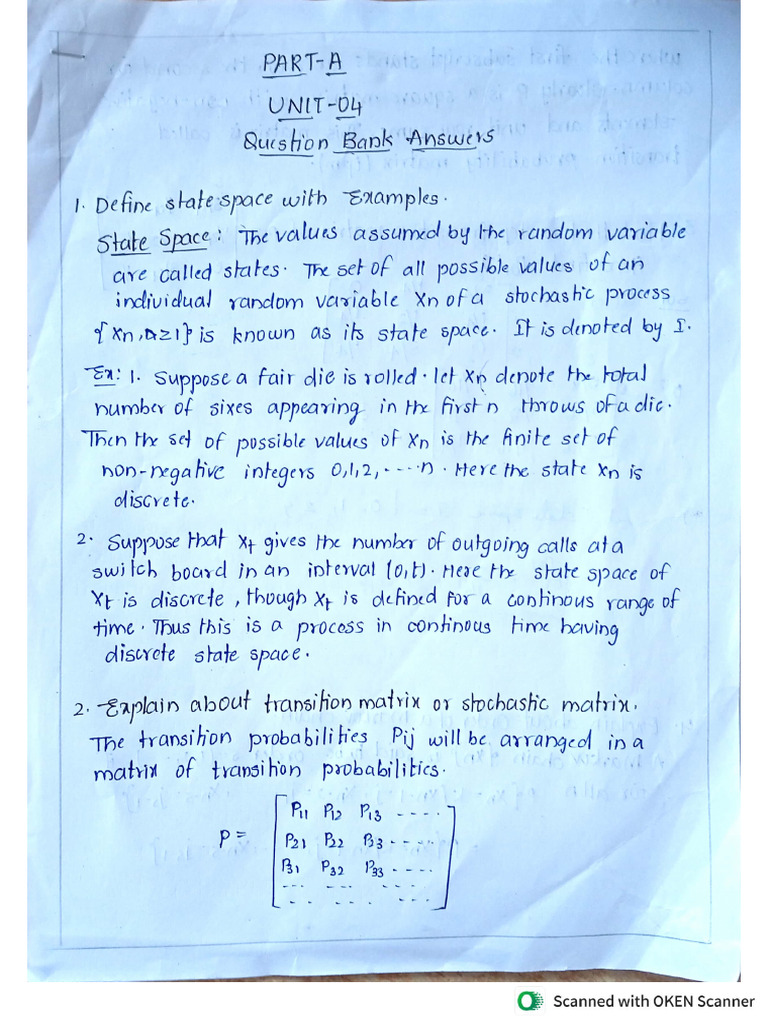 PART-A
UNIT-04
Question Bank Answers
1. Define state space with Examples.
State Space: The values assumed by the random variable
are called states. The set of all possible values of an
individual random variable Xn of a stochastic process
{Xn, n≥1} is known as its state space. It is denoted by I.
Ex: 1. Suppose a fair die is rolled. let Xn denote the total
number of sixes appearing in the first n throws of a die.
Then the set of possible values of Xn is the finite set of
non-negative integers 0,1,2, ----n. Here the state Xn is
discrete.
2. Suppose that Xt gives the number of outgoing calls at a
switch board in an interval (0,t). Here the state space of
Xt is discrete, though Xt is defined for a continous range of
time. Thus this is a process in continous time having
discrete state space.
2. Explain about transition matrix or stochastic matrix.
The transition probabilities Pij will be arranged in a
matrix of transition probabilities.
P11 P12 P13 ----.
P= P21 P22 P23 ----
P31 P32 P33 ----.
--- --- ---- ---
-- -- --- ---
Scanned with OKEN Scanner